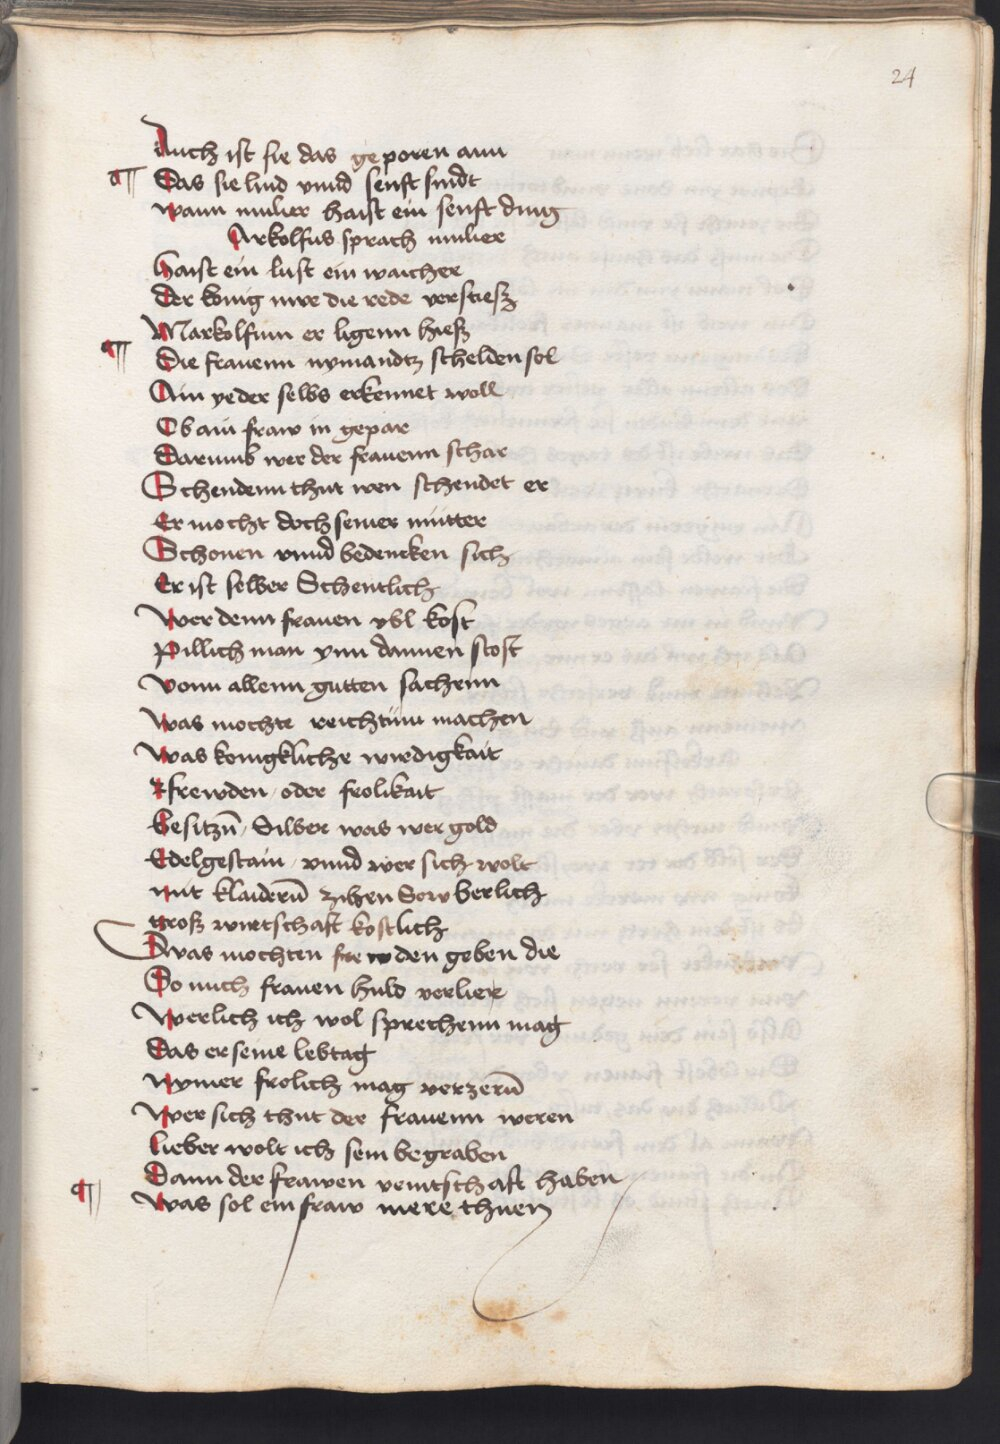 24
Auch ist sie das geporen ann
¶ Das sie lind vnnd senft sindt
wann mulier haist ein senft ding
Arkolfus sprach mulier
haist ein lust ein waicher
Der konig nwe die rede verstiesz
Markolfum er ligenn hiesz
¶ Die frauenn nymandtz schelden sol
Ain yeder selbs erkennet woll
Ob ain fraw in gepar
Darumb wer der frauenn schar
Schendenn thut wen schendet er
Er mocht doch seiner mutter
Schonen vnnd bedencken sich
Er ist selber Schentlich
wer denn frauen vbl kost
Pillich man ynn dannen stost
vonn allenn gutten sachenn
was mochte reichtum machen
was konigkliche wirdigkait
frewden oder frolikait
besitzn̄ Silber was wer gold
Edelgestain vnnd wer sich wolt
mit klaidern̄ zihen Sowberlich
gross wirtschaft kostlich
was mochten frewden geben die
So mich frauen huld verlier
werlich ich wol sprechenn mag
Das er seine lebtag
nymer frolich mag verzern̄
wer sich thut der frauenn weren
lieber wolt ich sein begraben
Dann der frawen veintschaft haben
¶ was sol ein fraw mere thuen